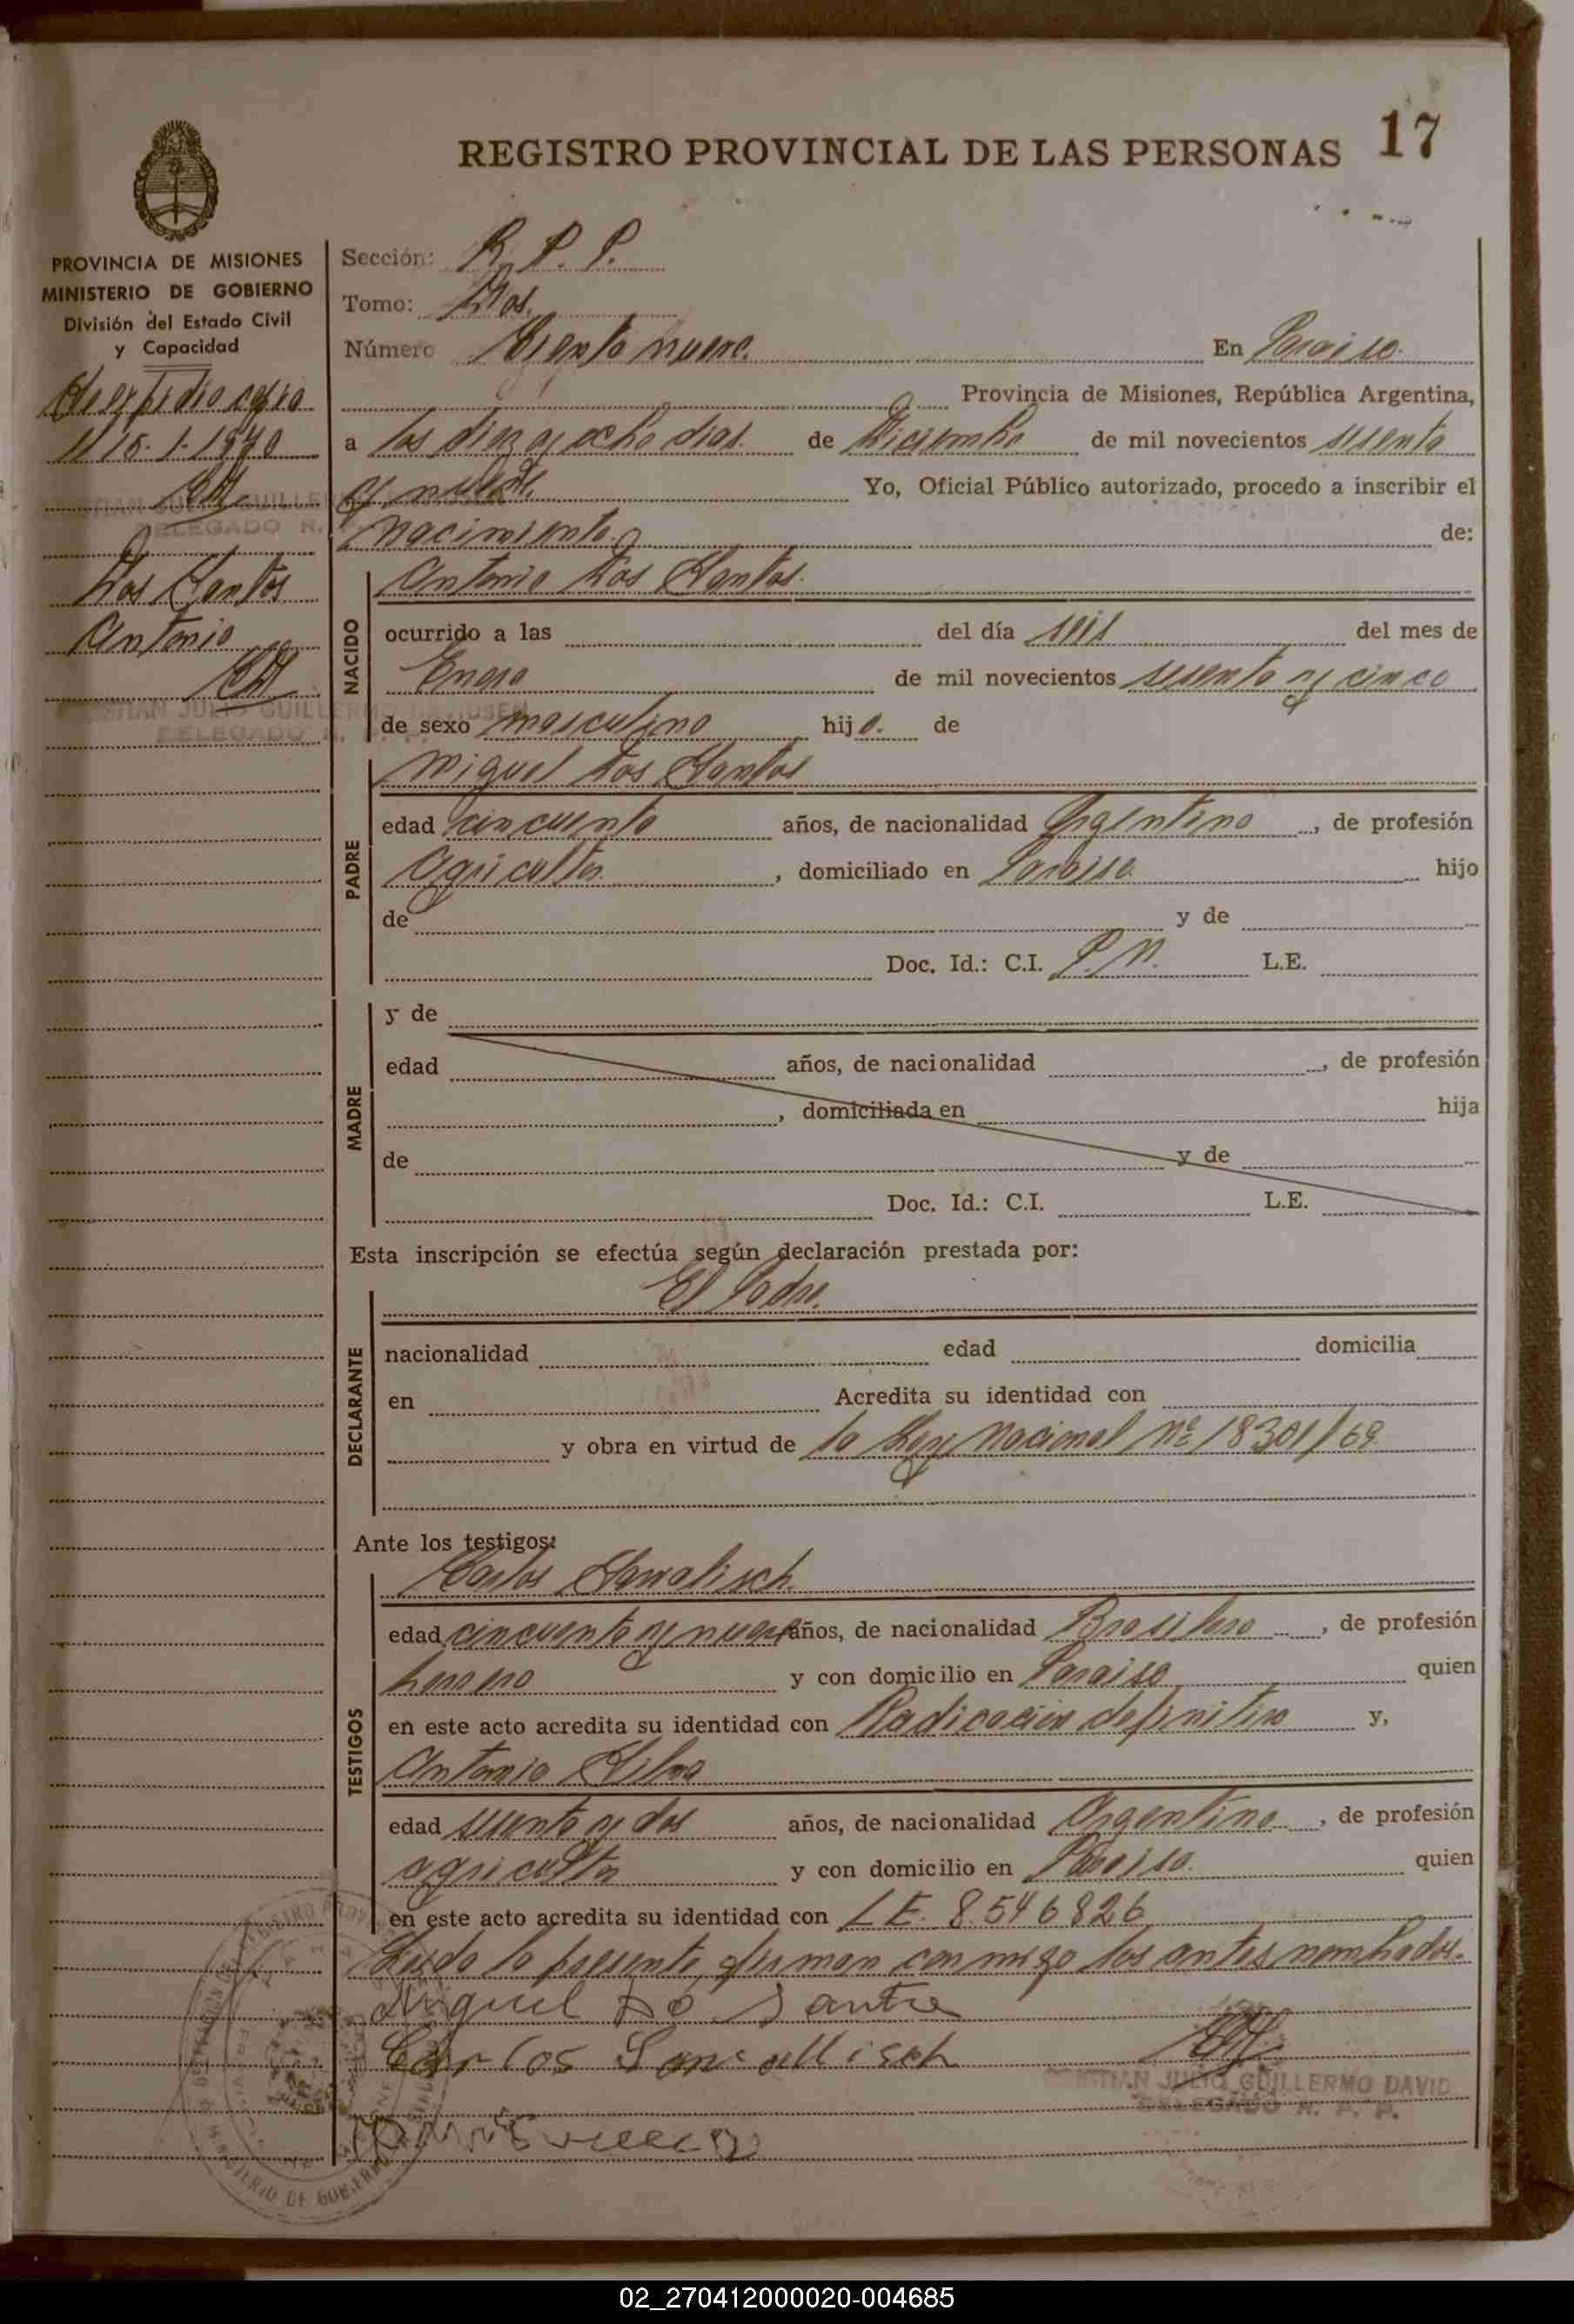 REGISTRO PROVINCIAL DE LAS PERSONAS 17
PROVINCIA DE MISIONES
MINISTERIO DE GOBIERNO
División del Estado Civil
y Capacidad
Se expidio copia
el 15-1-1970
DELEGADO R.
Dos Santos
Antonio
CRISTIAN JULIO GUILLERMO DAVIDSEN
DELEGADO R.
Sección: R. P. P.
Tomo: Dos.
Número Ciento nueve. En Paraiso.
Provincia de Misiones, República Argentina,
a los diez y ocho dias. de Diciembre de mil novecientos sesenta
y nueve. Yo, Oficial Público autorizado, procedo a inscribir el
nacimiento. de:
NACIDO
Antonio Dos Santos.
ocurrido a las del día seis del mes de
Enero de mil novecientos sesenta y cinco
de sexo masculino hijo. de
PADRE
Miguel Dos Santos
edad cincuenta años, de nacionalidad Argentina, de profesión
Agricultor. , domiciliado en Paraiso. hijo
de y de
Doc. Id.: C.I. P. N. L.E.
MADRE
y de
edad años, de nacionalidad , de profesión
, domiciliada en hija
de y de
Doc. Id.: C.I. L.E.
Esta inscripción se efectúa según declaración prestada por:
DECLARANTE
El Padre.
nacionalidad edad domicilia
en Acredita su identidad con
y obra en virtud de la Ley Nacional Nº 18301/69.
Ante los testigos:
TESTIGOS
Carlos
edad cincuenta y nueve años, de nacionalidad Brasilera, de profesión
herrero y con domicilio en Paraiso quien
en este acto acredita su identidad con Radicación definitiva y,
Antonio Silva
edad sesenta y dos años, de nacionalidad Argentina, de profesión
agricultor y con domicilio en Paraiso. quien
en este acto acredita su identidad con L E. 8.546826
Leida la presente, firman conmigo los antes nombrados.
Miguel Do Santo
Carlos
JULIO GUILLERMO DAVID
DELEGADO R. P. P.
MINISTERIO DE GOBIERNO
02_270412000020-004685